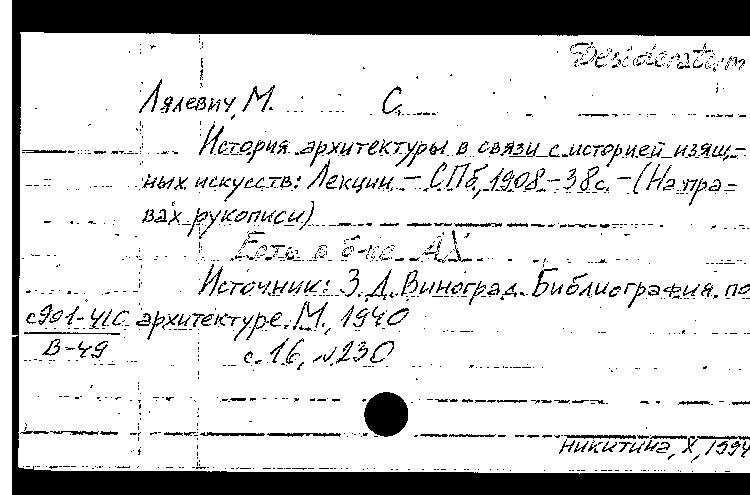 Desideratum
Лялевич, М. С.
История архитектуры в связи с историей изящ-
ных искусств: Лекции. – СПб, 1908 – 38 с. – (На пра-
вах рукописи)
Есть в б-ке АХ
Источник: З. Д. Виноград. Библиография по
с901-41С архитектуре. М., 1940
В-49 с. 16, №230
Никитина, X, 1994